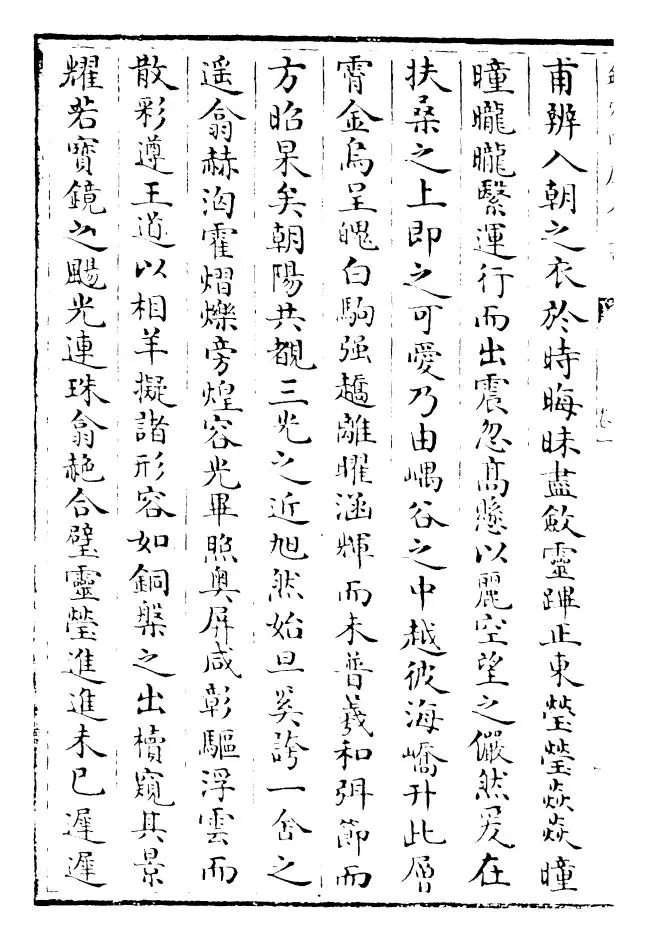 甫辨入朝之衣於時晦昧盡斂靈踔正東瑩瑩焱焱曈
曈曨曨繄運行而出震忽高懸以麗空望之儼然爰在
扶桑之上即之可愛乃由嵎谷之中越彼海嶠升此層
霄金烏呈魄白駒强趫離曜涵輝而未普羲和弭節而
方昭杲矣朝陽共覩三光之近旭然始旦奚誇一舍之
遥翕赫汹霍熠爍旁煌容光畢照奥屏咸彰驅浮雲而
散彩遵王道以相羊擬諸形容如銅槃之出櫝窺其景
耀若寳鏡之颺光連珠翕赩合璧靈瑩進進未已遲遲